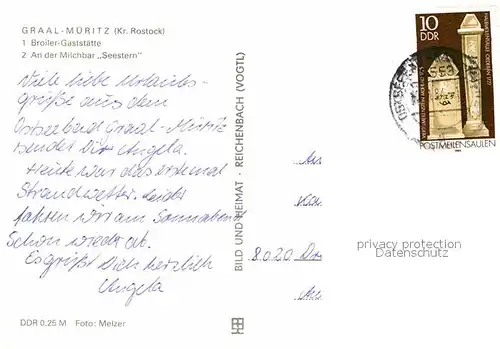 GRAAL-MÜRITZ (Kr. Rostock)
1 Broiler-Gaststätte
2 An der Milchbar „Seestern"
Viele liebe Urlaubs-
grüße aus dem
Ostseebad Graal-Müritz
sendet Dir Angela.
Heute war das erstemal
Strandwetter. Leider
fahren wir am Sonnabend
schon wieder ab.
Es grüßt Dich herzlich
Angela
DDR 0,25 M Foto: Melzer
BILD UND HEIMAT · REICHENBACH (VOGTL)
10
DDR
POSTMEILENSÄULEN
8020 Dr
privacy protection
Datenschutz